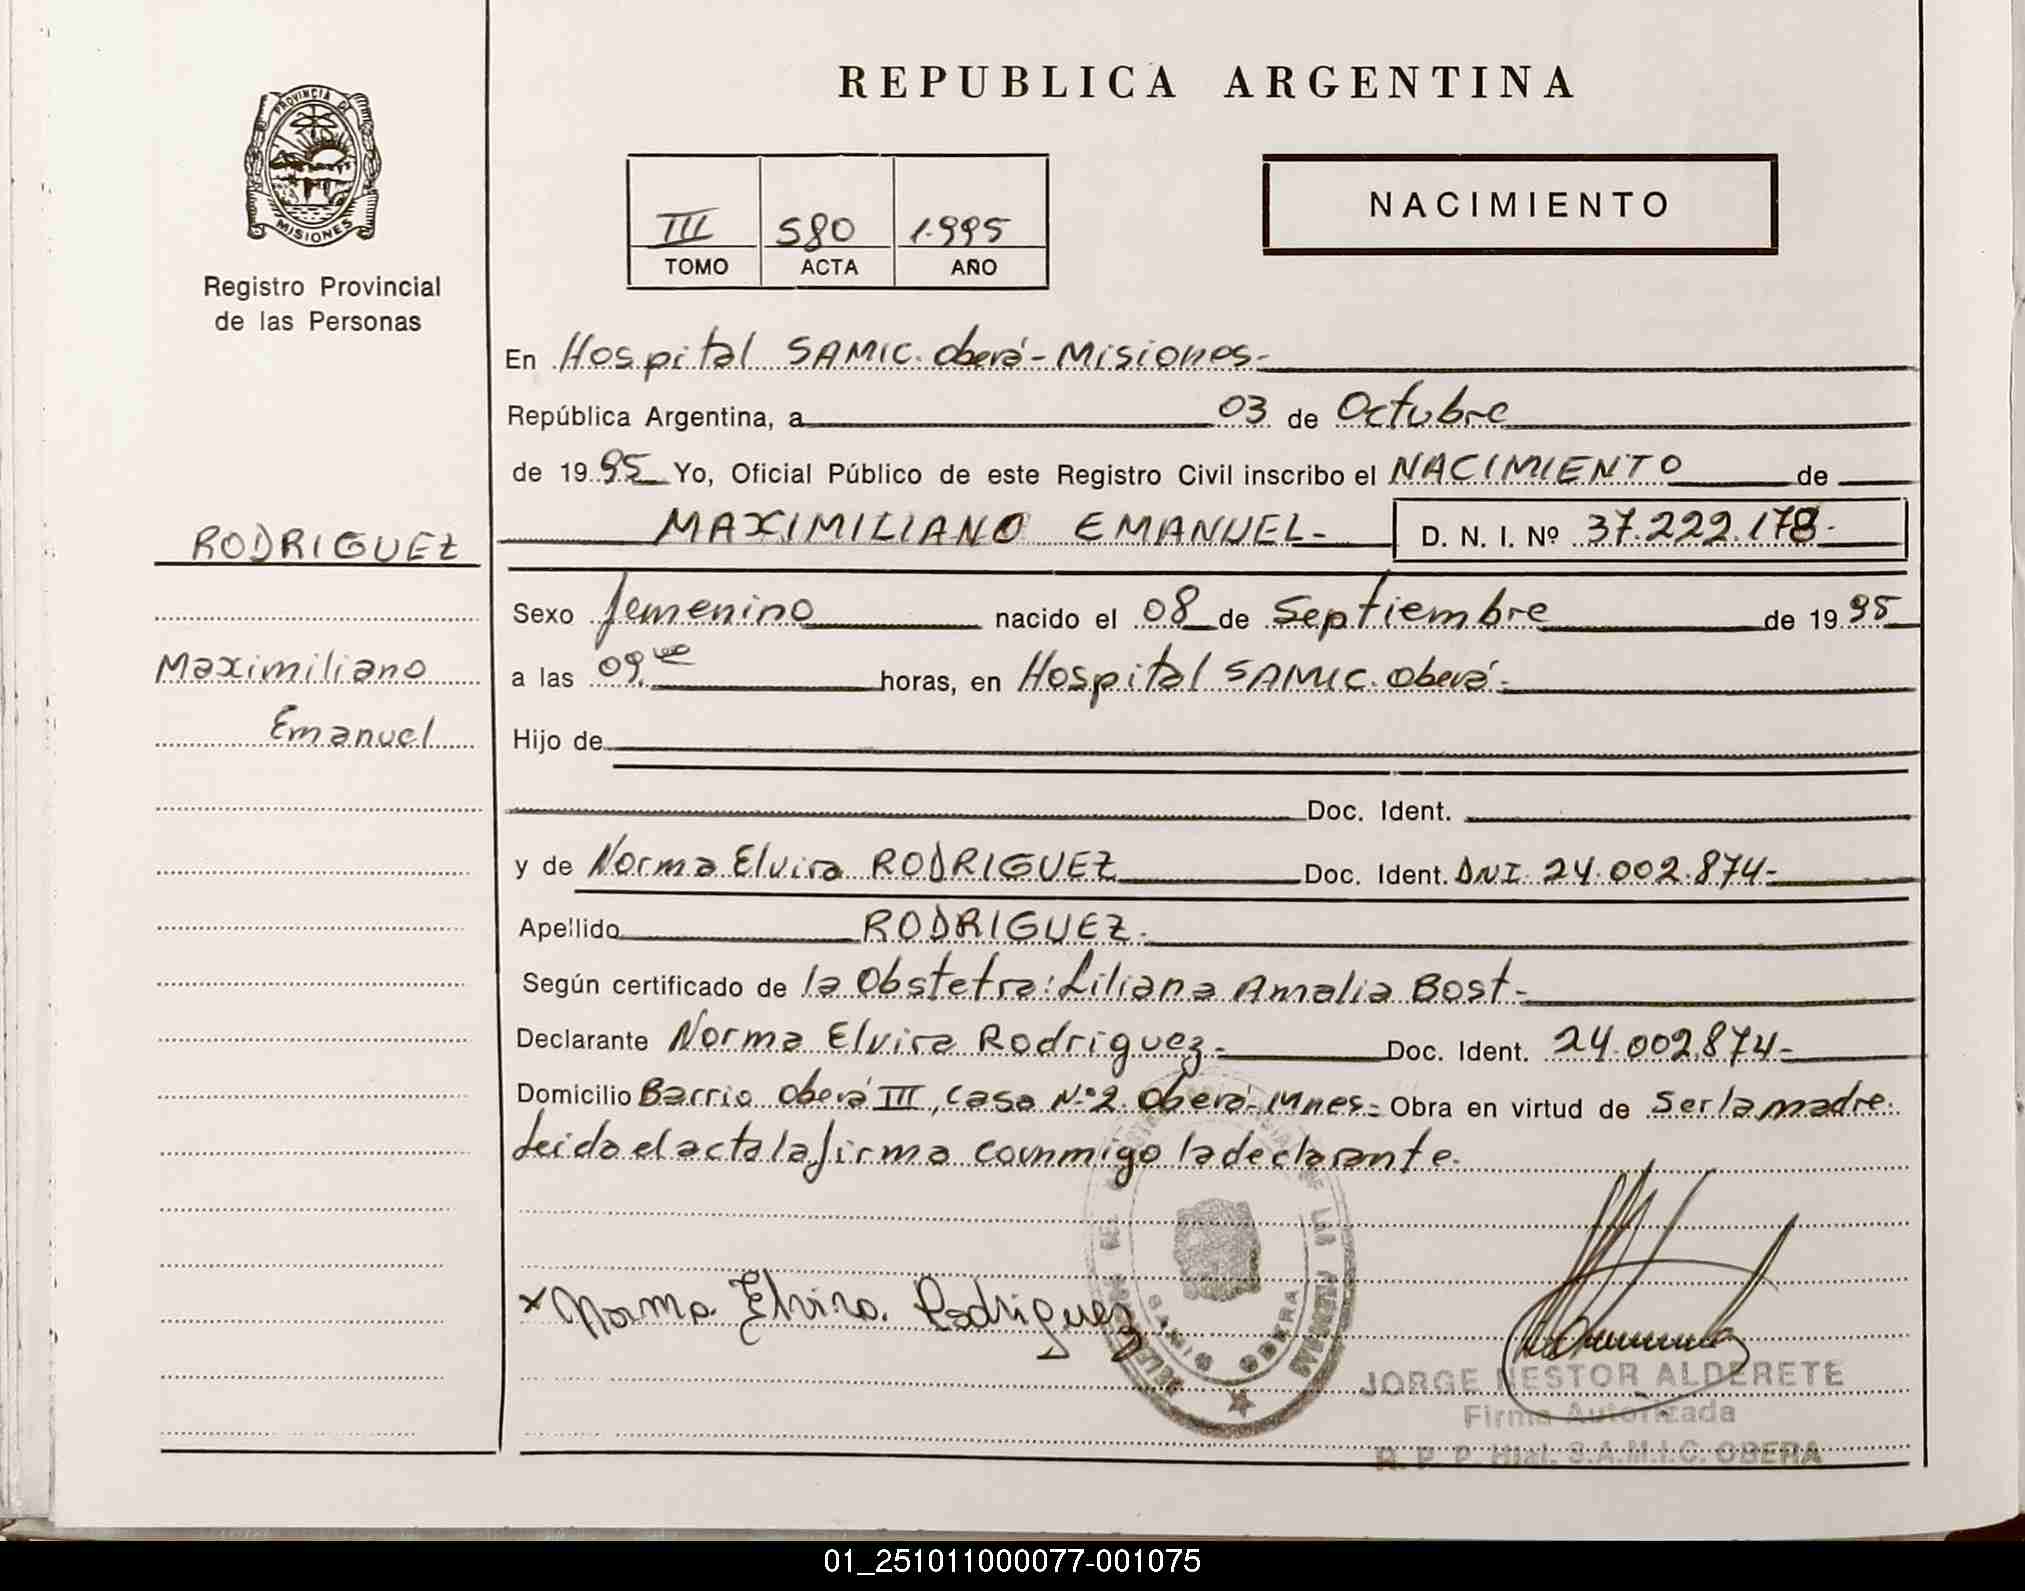 REPUBLICA ARGENTINA
PROVINCIA DE
MISIONES
Registro Provincial
de las Personas
III 580 1.995
TOMO ACTA AÑO
NACIMIENTO
En Hospital SAMIC. Oberá - Misiones-
República Argentina, a 03 de Octubre
de 19 95 Yo, Oficial Público de este Registro Civil inscribo el NACIMIENTO de
RODRIGUEZ
MAXIMILIANO EMANUEL- D. N. I. Nº 37.222.178-
Sexo femenino nacido el 08 de Septiembre de 19 95
Maximiliano
Emanuel
a las 09, horas, en Hospital SAMIC. Oberá-
Hijo de
Doc. Ident.
y de Norma Elvira RODRIGUEZ Doc. Ident. DNI. 24.002.874-
Apellido RODRIGUEZ.
Según certificado de la Obstetra: Liliana Amalia Bost-
Declarante Norma Elvira Rodriguez- Doc. Ident. 24.002.874-
Domicilio Barrio Oberá III, Casa N.º 2. Oberá-Mnes- Obra en virtud de ser la madre.
Leida el acta la firma conmigo la declarante.
x Norma. Elvira. Rodriguez
OBERA
JORGE NESTOR ALDERETE
Firma Autorizada
R. P. P. Htal. S.A.M.I.C. OBERA
01_251011000077-001075